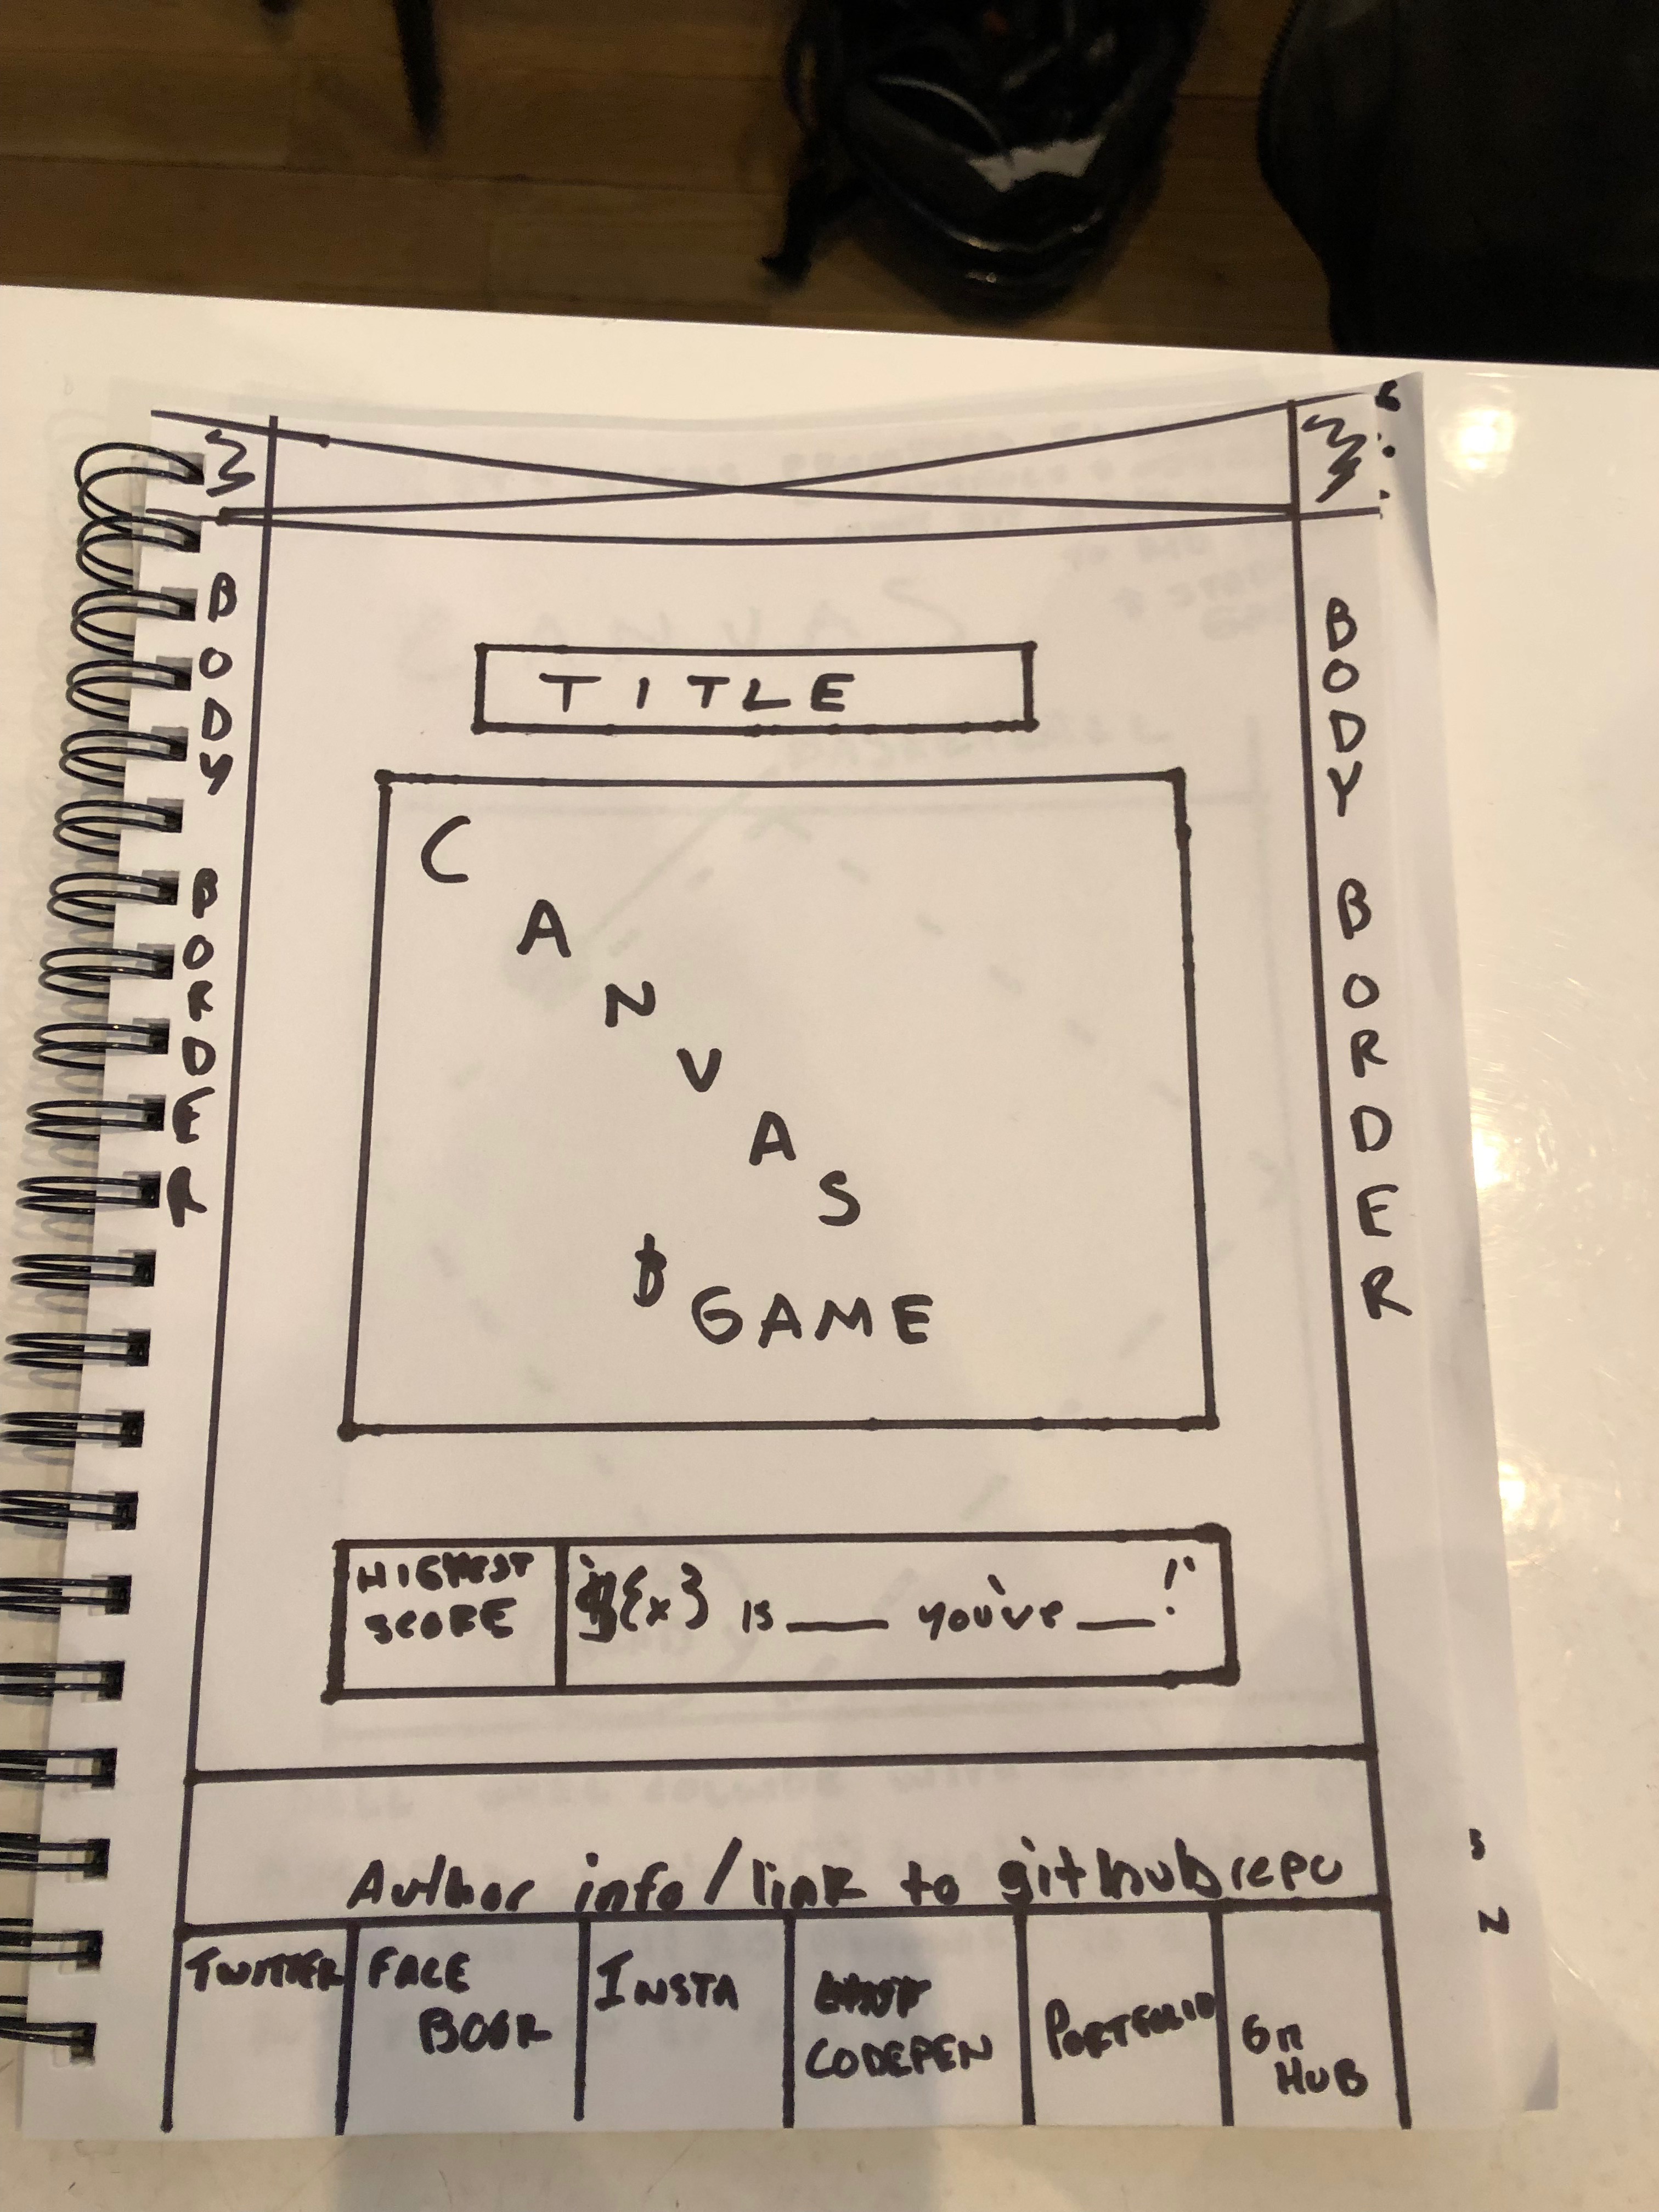 BODY BORDER
BODY BORDER
TITLE
CANVAS
GAME
HIGHEST
SCORE
`${x} is ___ you've ___!`
Author info/link to github repo
TWITTER
FACE
BOOK
INSTA
CODEPEN
PORTFOLIO
GIT
HUB